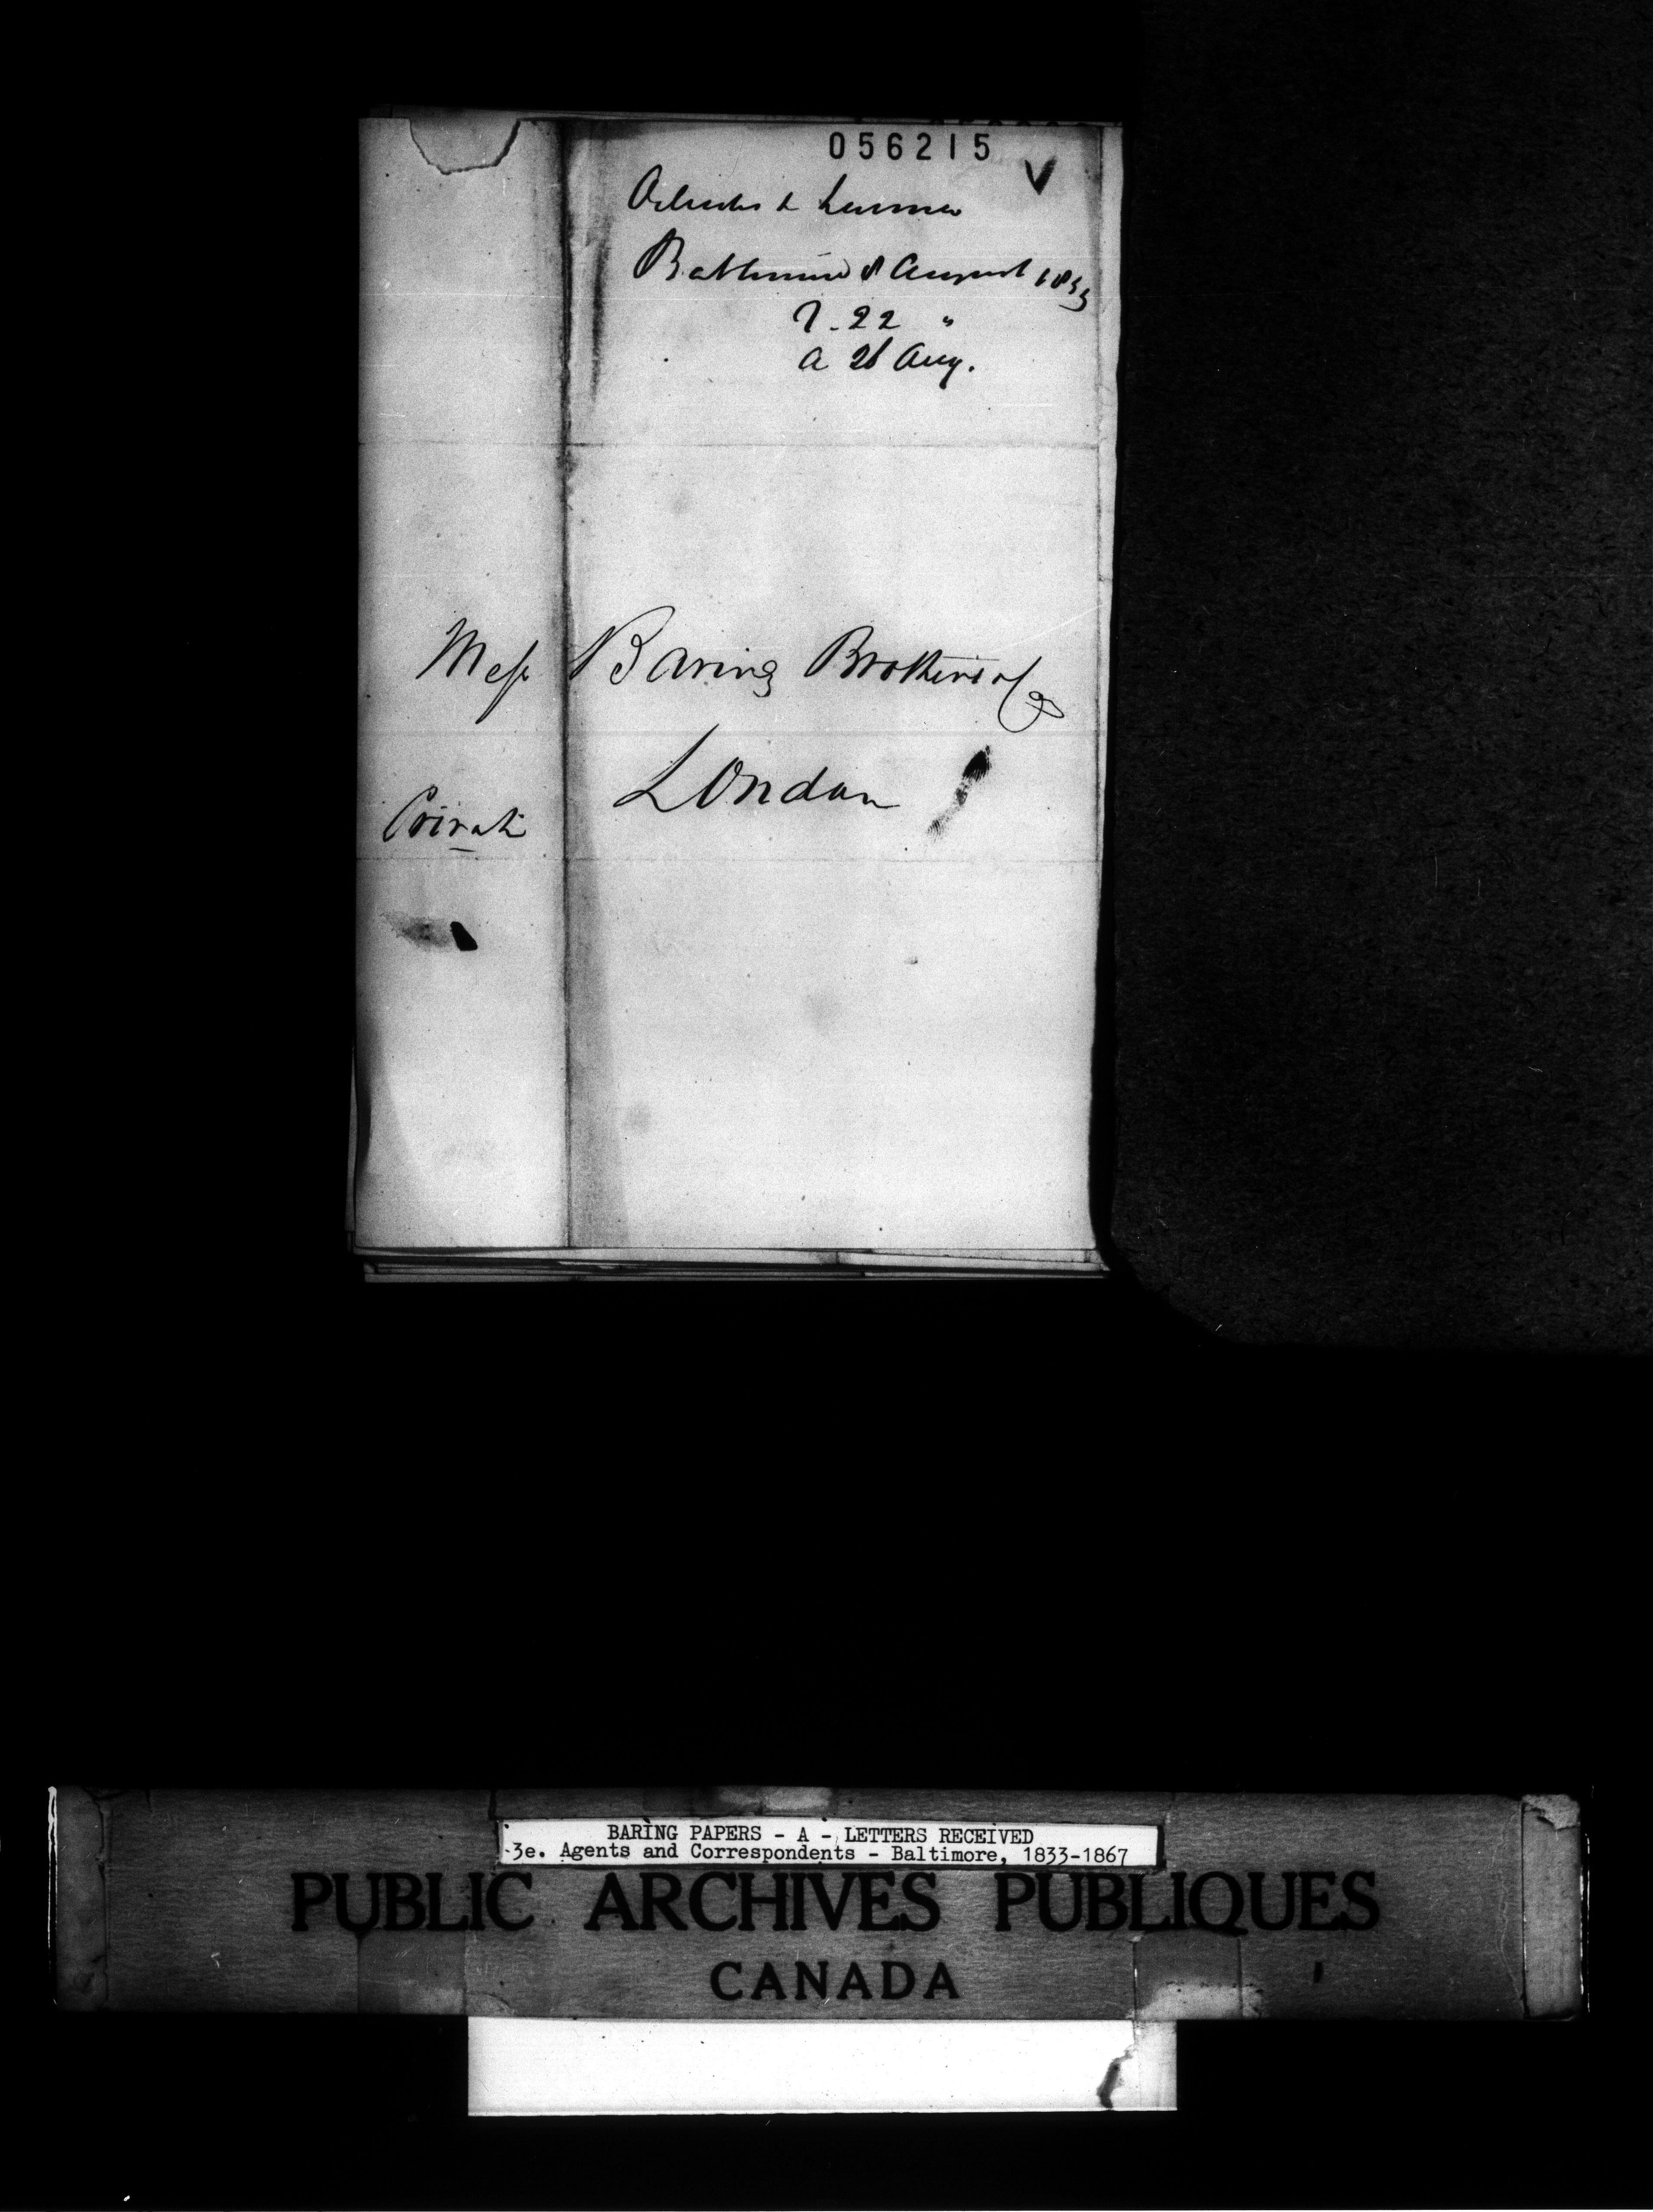 056215
V
Baltimore 8 August 1833
22 "
a 26 Aug.
Mess Baring Brothers & Co
London
Private
BARING PAPERS - A - LETTERS RECEIVED
3e. Agents and Correspondents - Baltimore, 1833-1867
PUBLIC ARCHIVES PUBLIQUES
CANADA